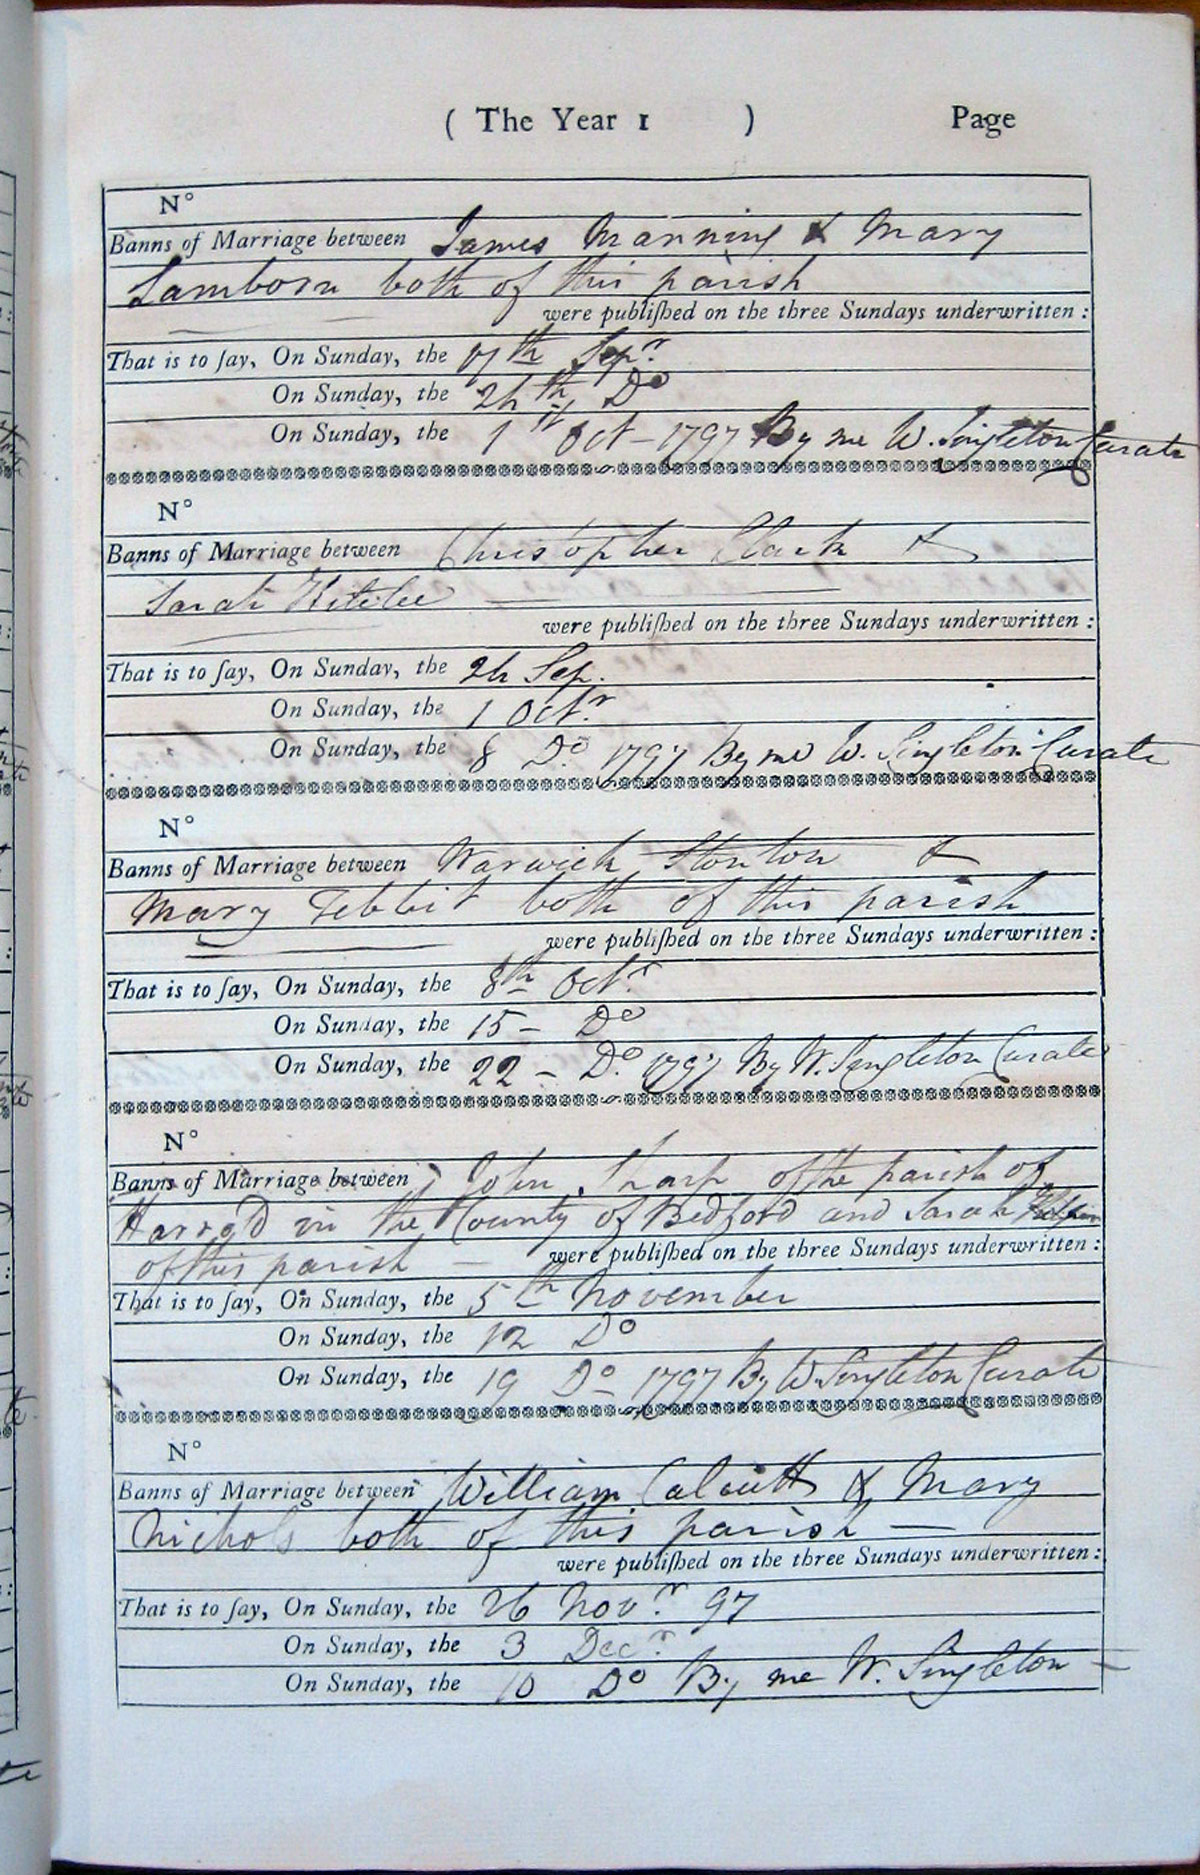 ( The Year 1 ) Page
N°
Banns of Marriage between James Manning & Mary
Lamborn both of this parish
were publiſhed on the three Sundays underwritten :
That is to ſay, On Sunday, the 17th Sepr.
On Sunday, the 24th Do
On Sunday, the 1st Oct - 1797 By me W. Singleton Curate
N°
Banns of Marriage between Christopher Clark &
Sarah
were publiſhed on the three Sundays underwritten :
That is to ſay, On Sunday, the 24 Sep.
On Sunday, the 1 Octr.
On Sunday, the 8 Do. 1797 By me W. Singleton Curate
N°
Banns of Marriage between Warwick Stonton &
Mary Tebbit both of this parish
were publiſhed on the three Sundays underwritten :
That is to ſay, On Sunday, the 8th Octr.
On Sunday, the 15 - Do
On Sunday, the 22 - Do. 1797 By W. Singleton Curate
N°
Banns of Marriage between John Sharp of the parish of
Harrold in the County of Bedford and Sarah
of this parish — were publiſhed on the three Sundays underwritten :
That is to ſay, On Sunday, the 5th November
On Sunday, the 12 Do
On Sunday, the 19 Do 1797 By W Singleton Curate
N°
Banns of Marriage between William Calcutt & Mary
Nichols both of this parish —
were publiſhed on the three Sundays underwritten :
That is to ſay, On Sunday, the 26 Novr. 97
On Sunday, the 3 Decr.
On Sunday, the 10 Do By me W. Singleton —